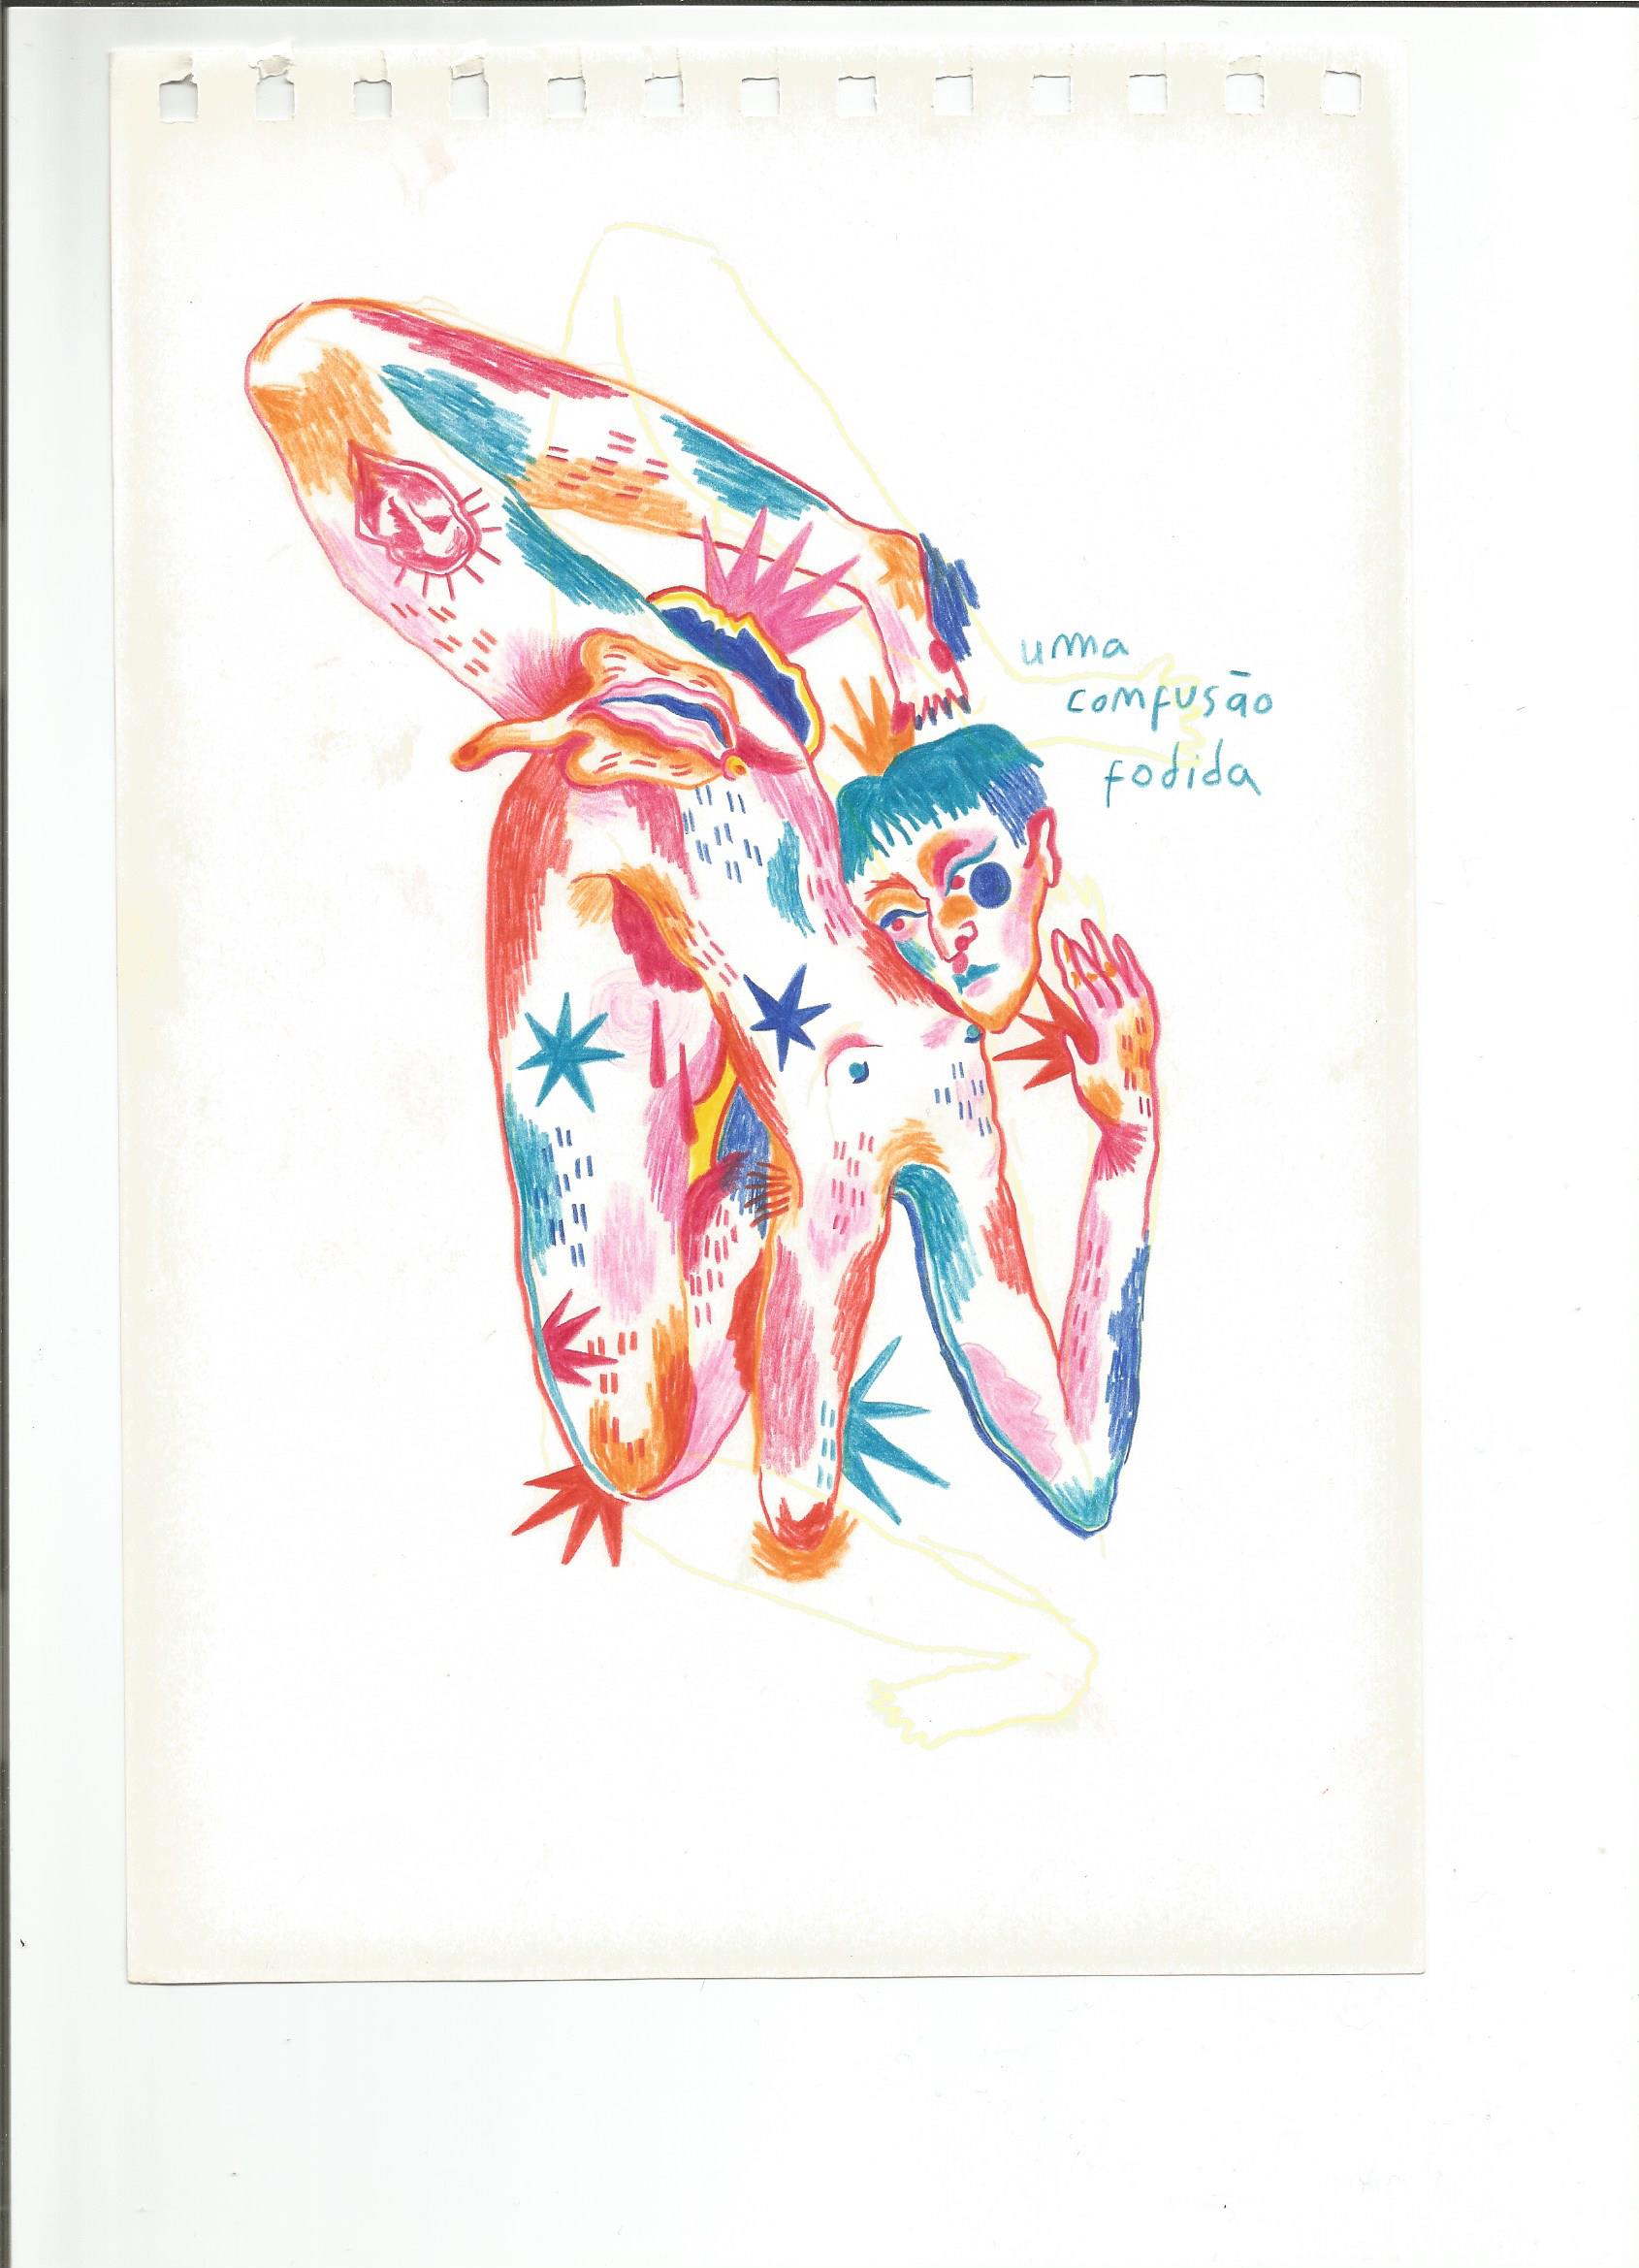 uma
comfusão
fodida